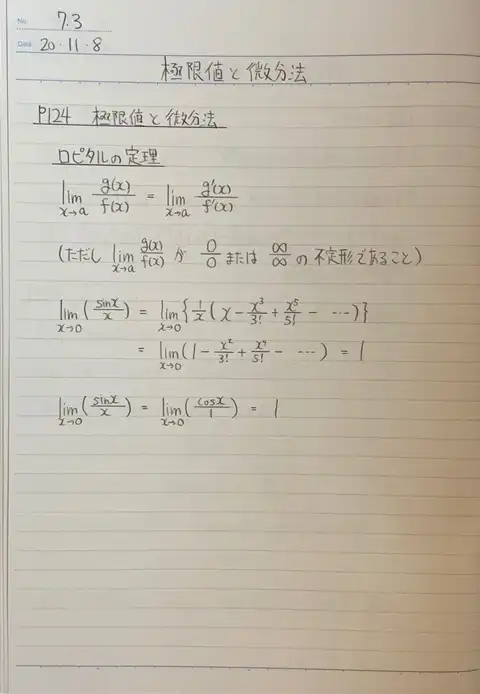 No. 7.3
Date 20・11・8
極限値と微分法
P124 極限値と微分法
ロピタルの定理
lim_{x→a} g(x)/f(x) = lim_{x→a} g'(x)/f'(x)
(ただし lim_{x→a} g(x)/f(x) が 0/0 または ∞/∞ の不定形であること)
lim_{x→0} (sinx/x) = lim_{x→0} {1/x (x - x³/3! + x⁵/5! - …)}
= lim_{x→0} (1 - x²/3! + x⁴/5! - …) = 1
lim_{x→0} (sinx/x) = lim_{x→0} (cosx/1) = 1